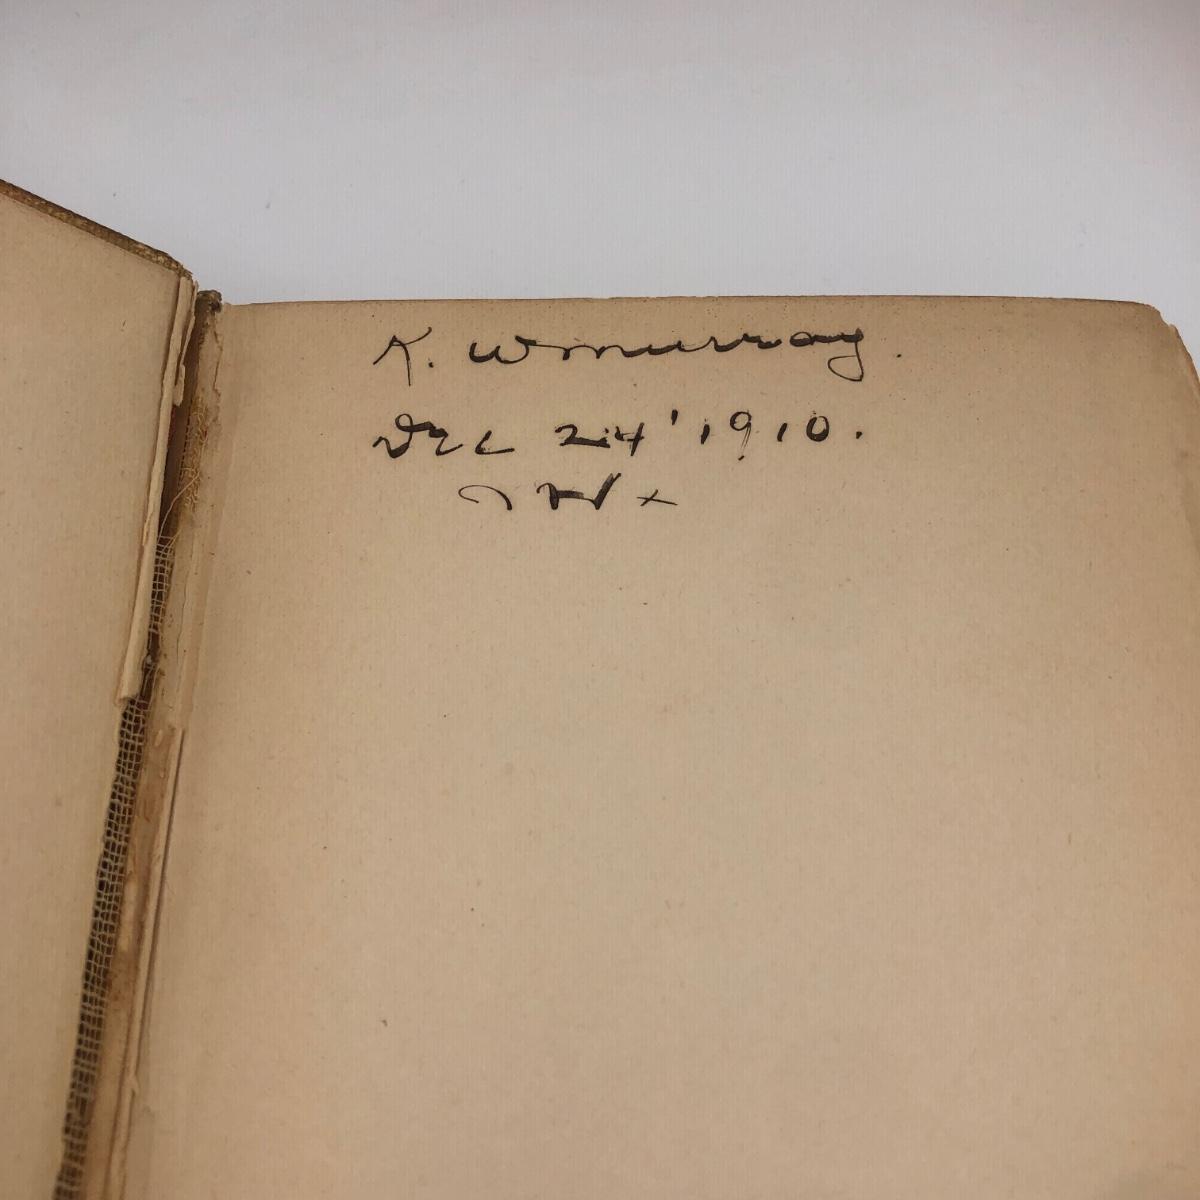 K. W Murray.
Dec 24' 1910.